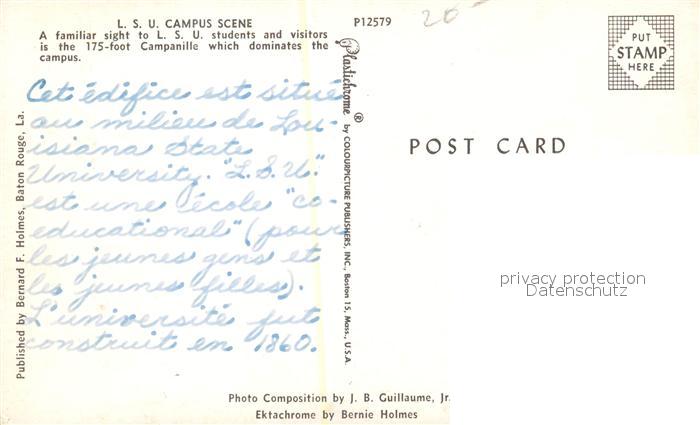 L. S. U. CAMPUS SCENE
A familiar sight to L. S. U. students and visitors
is the 175-foot Campanille which dominates the
campus.
P12579
20
PUT
STAMP
HERE
POST CARD
Cet édifice est situé
au milieu de Lou-
isiana State
University. "L.S.U."
est une école "co-
educational" (pour
les jeunes gens et
les jeunes filles).
L'université fut
construit en 1860.
Published by Bernard F. Holmes, Baton Rouge, La.
Plastichrome ® by COLOURPICTURE PUBLISHERS, INC., Boston 15, Mass., U.S.A.
privacy protection
Datenschutz
Photo Composition by J. B. Guillaume, Jr.
Ektachrome by Bernie Holmes